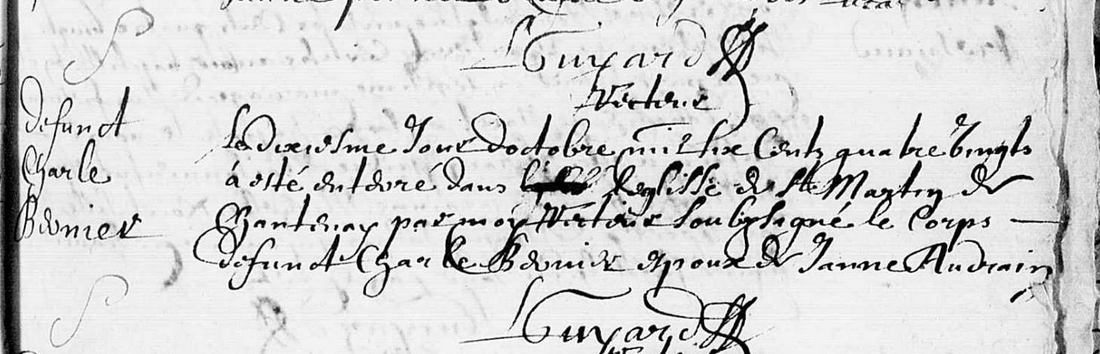 Guyard
Recteur
defunct
Charle
Bernier
Le dixiesme Jour doctobre mil six Cents quatre vingts
a esté enterré dans leglisse de St Martin de
Chantenay par moy Recteur soubsigné le Corps
defunct Charle Bernier epoux de Janne Audrain
Guyard